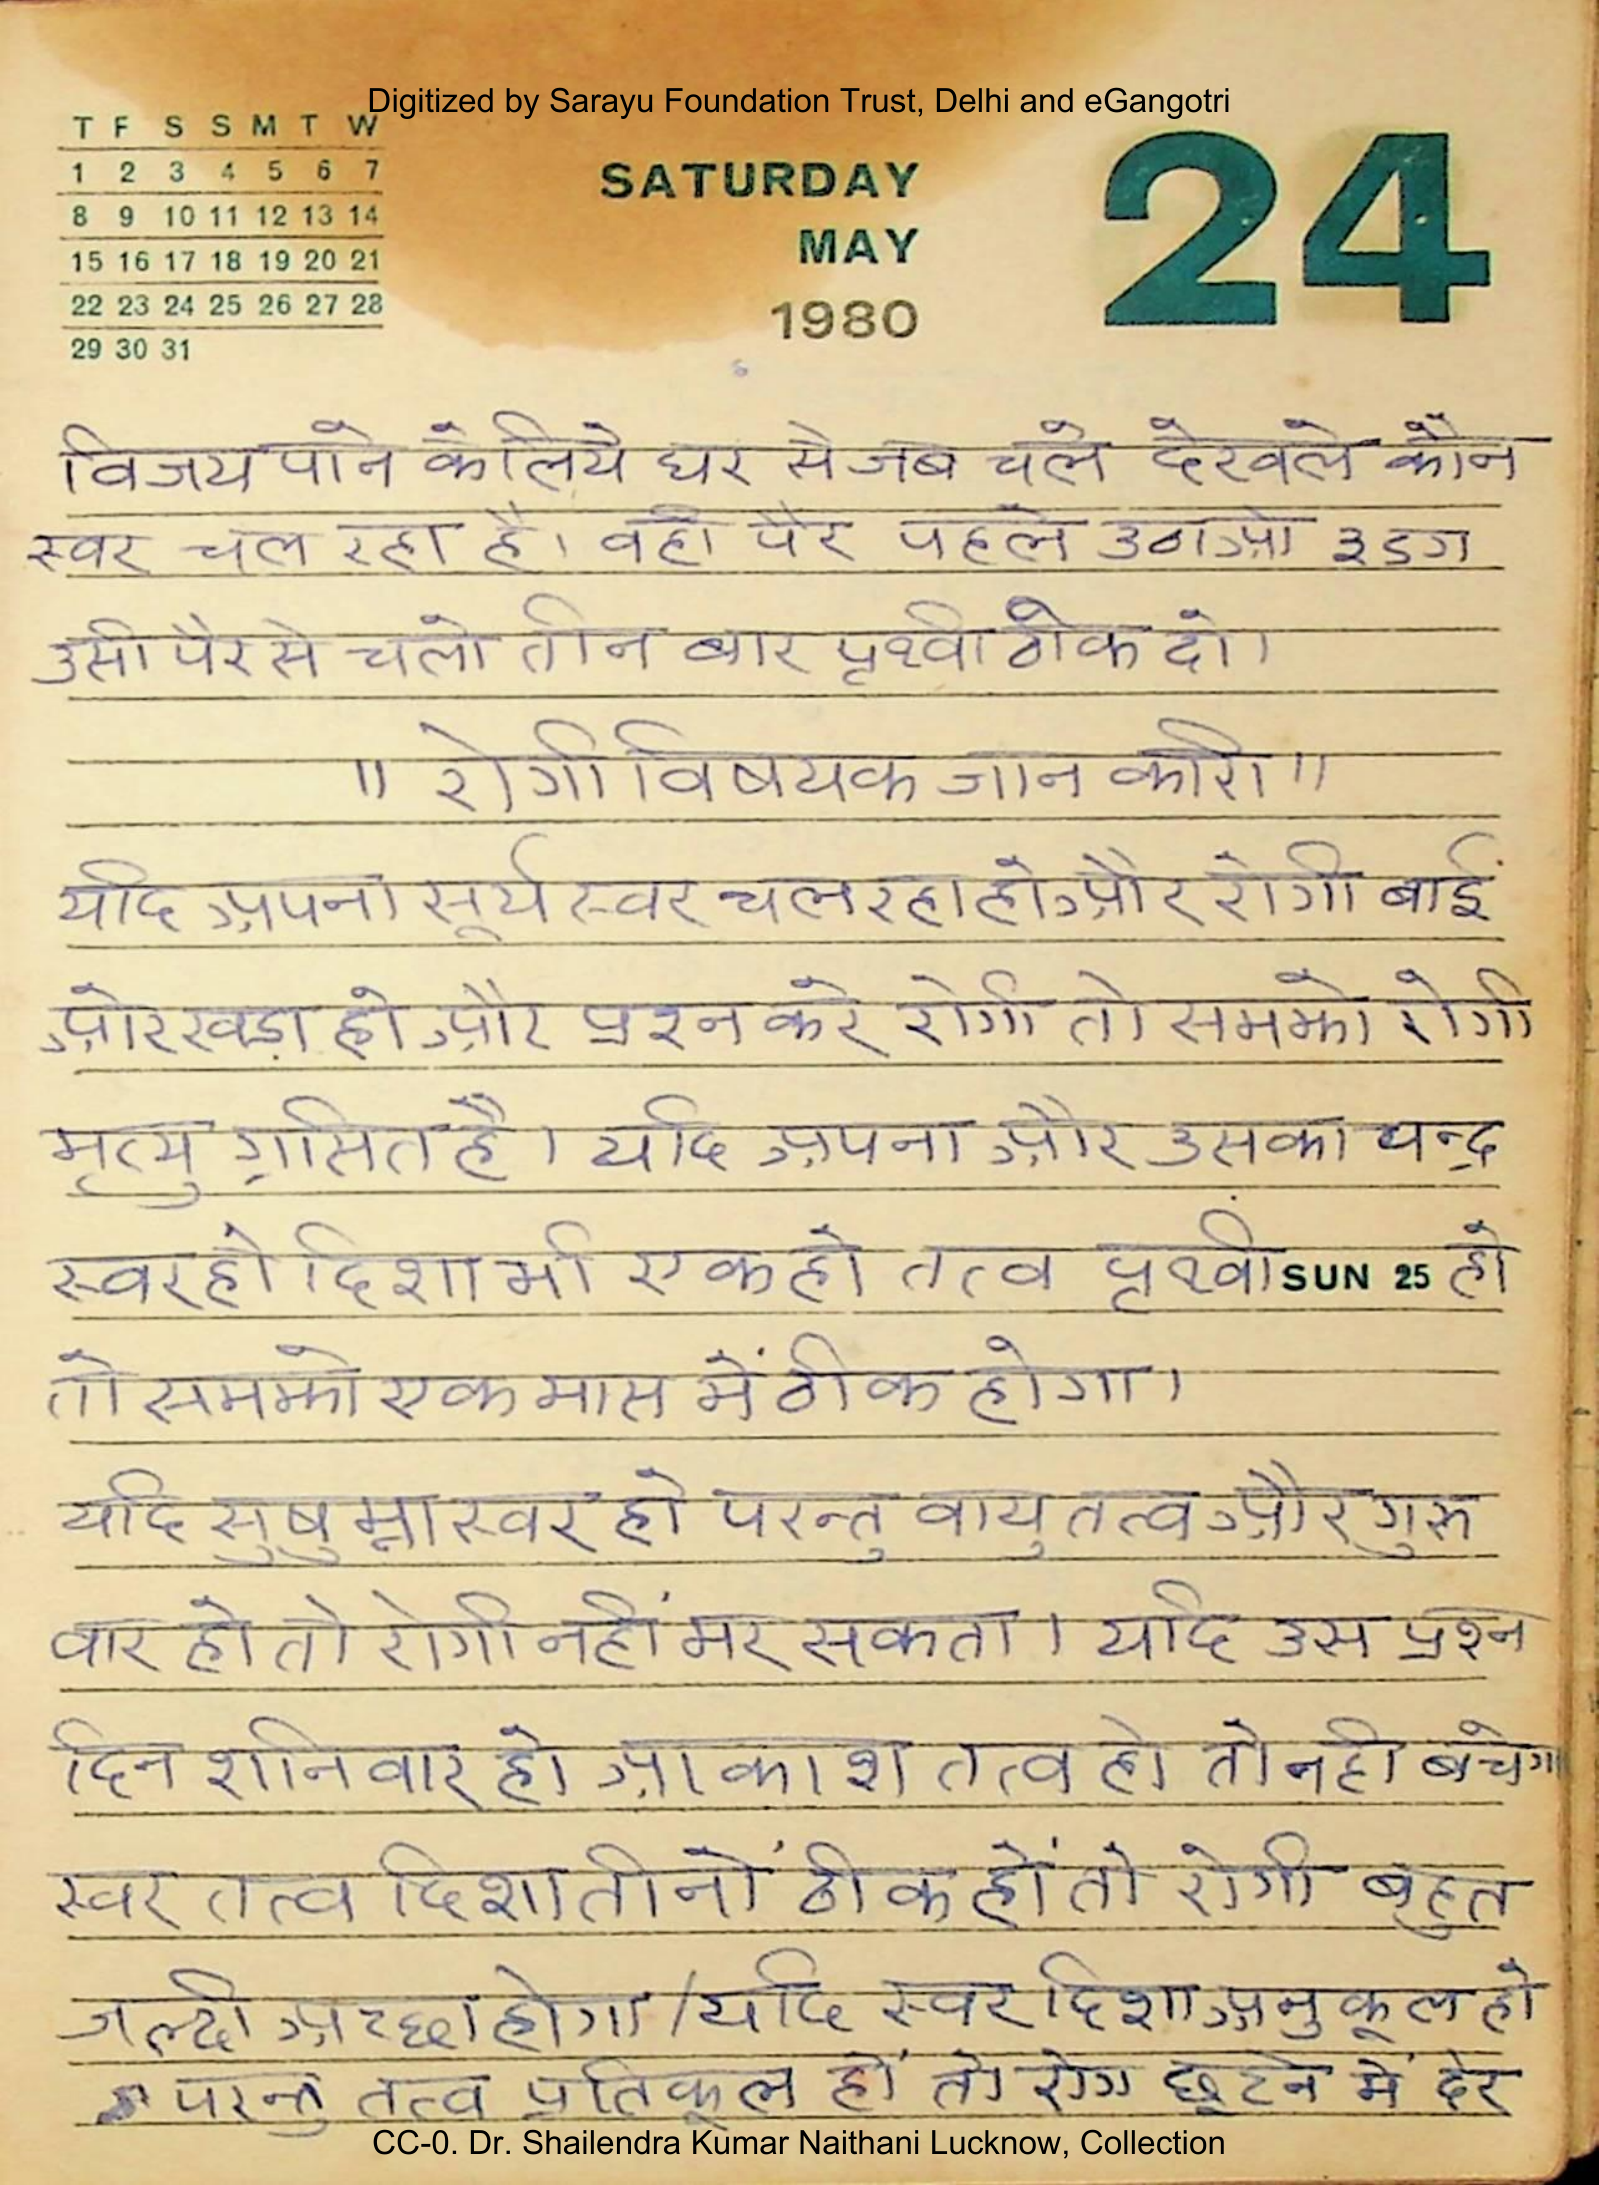 Digitized by Sarayu Foundation Trust, Delhi and eGangotri
T F S S M T W
1 2 3 4 5 6 7
8 9 10 11 12 13 14
15 16 17 18 19 20 21
22 23 24 25 26 27 28
29 30 31
SATURDAY
MAY
1980
24
विजय पाने के लिये घर से जब चले देखले कौन
स्वर चल रहा है। वही पैर पहले उठाओ ३ डग
उसी पैर से चलो तीन बार पृथ्वी ठोक दो।
॥ रोगी विषयक जानकारी ॥
यदि अपना सूर्य स्वर चल रहा हो और रोगी बाईं
ओर खड़ा हो और प्रश्न करे रोगी तो समझो रोगी
मृत्यु ग्रसित है। यदि अपना और उसका चन्द्र
स्वर हो दिशा भी एक हो तत्व पृथ्वी SUN 25 हो
तो समझो एक मास में ठीक होगा।
यदि सुषुम्ना स्वर हो परन्तु वायु तत्व और गुरु
वार हो तो रोगी नहीं मर सकता। यदि उस प्रश्न
दिन शनिवार हो आकाश तत्व हो तो नही बचेगा
स्वर तत्व दिशा तीनों ठीक हों तो रोगी बहुत
जल्दी अच्छा होगा / यदि स्वर दिशा अनुकूल हो
परन्तु तत्व प्रतिकूल हों तो रोग छूटने में देर
CC-0. Dr. Shailendra Kumar Naithani Lucknow, Collection